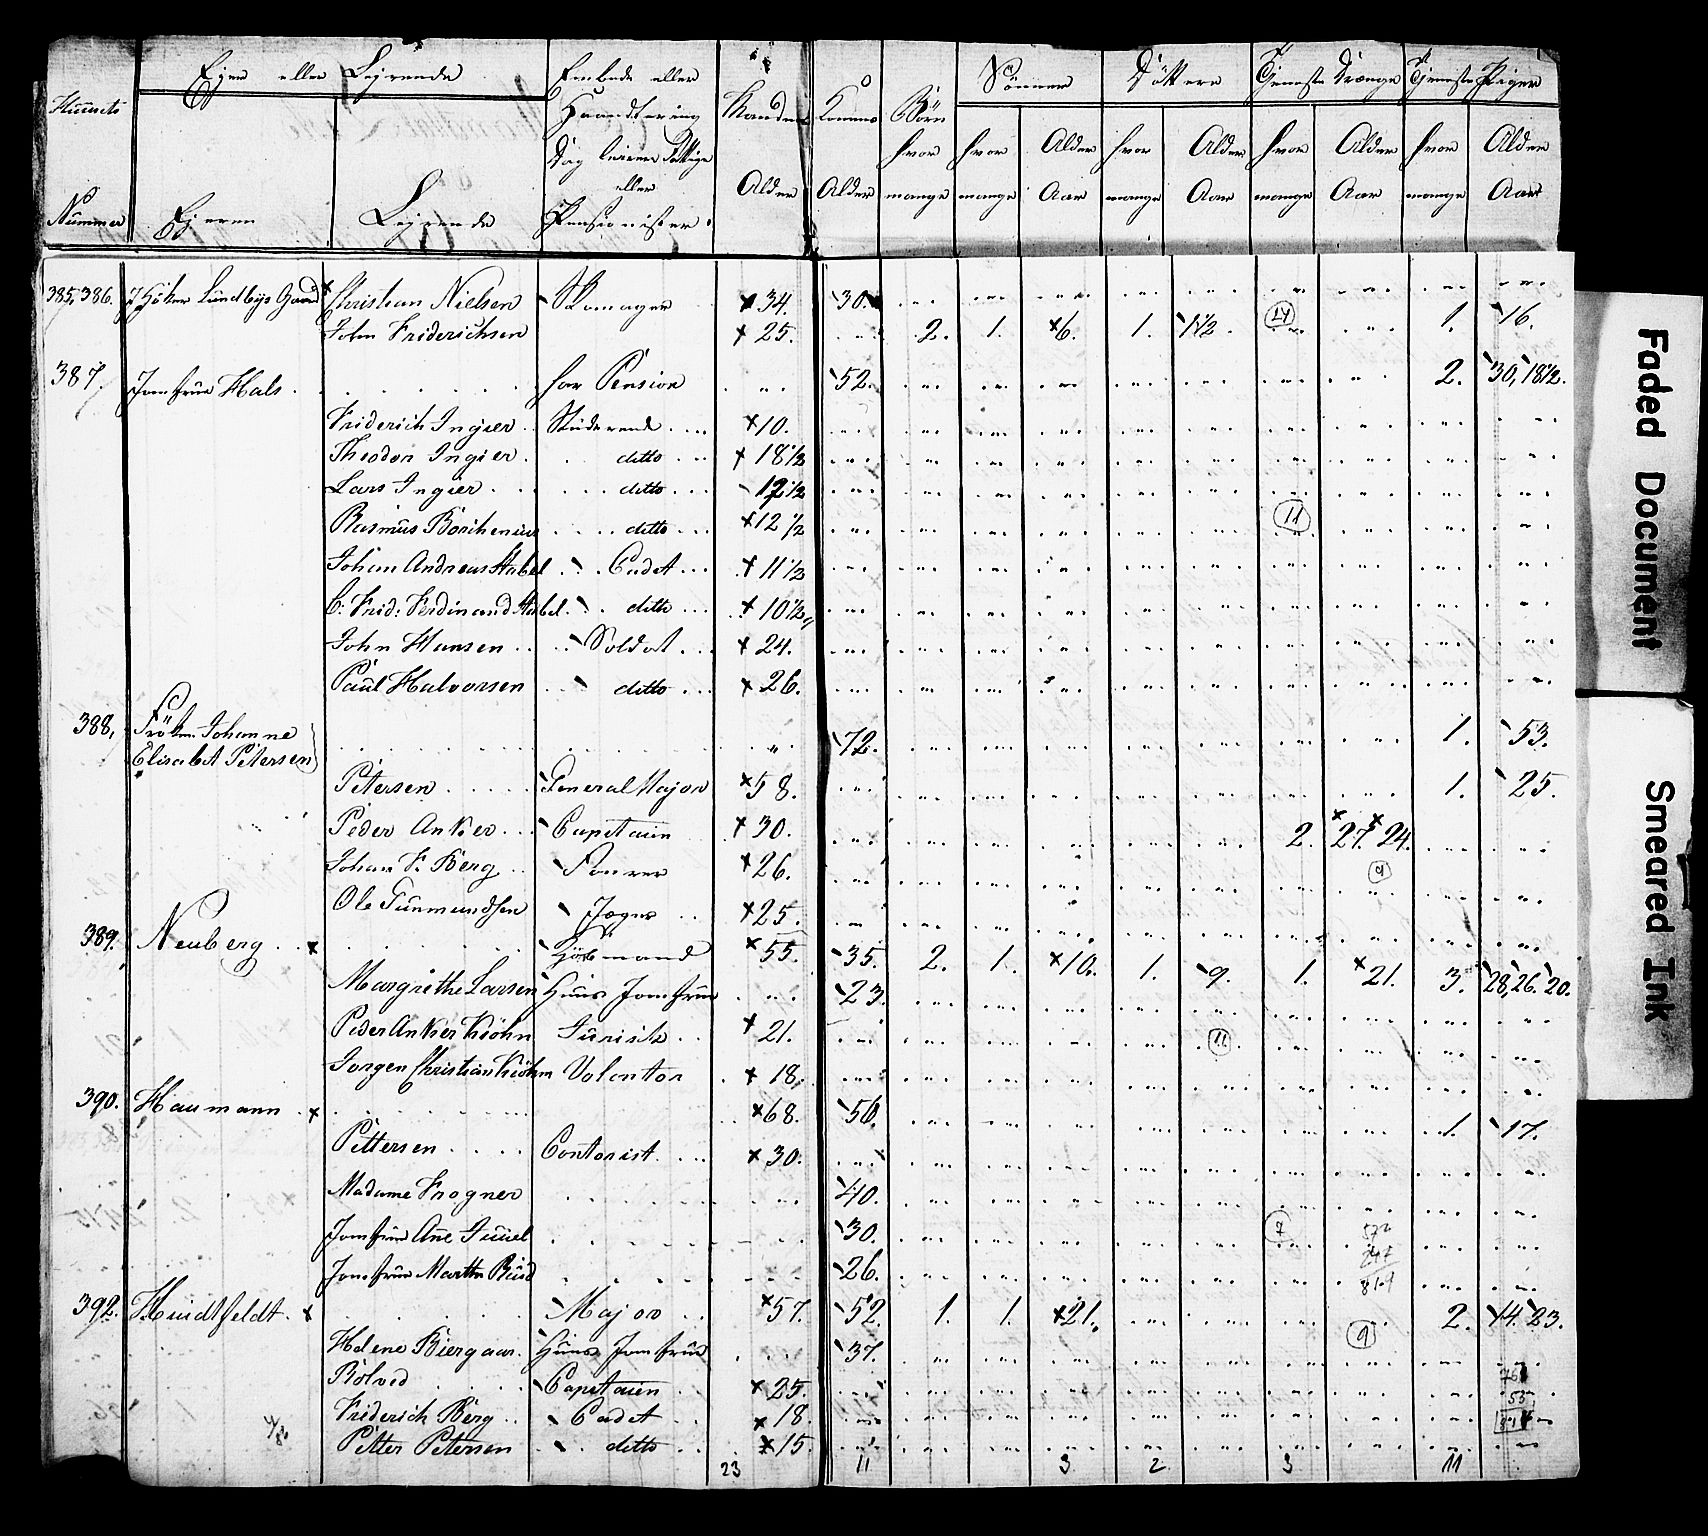 Huusets Nummer | Ejer eller Lejrende | Embede eller Haandtering Dag leiere Fattige eller Pensionister | Mandens Alder | Konens Alder | Börn hvor mange | Sönner | Döttere | Tjeneste Drænge | Tjeneste Piger
Ejeren | Lejrende | hvor mange | Alder Aar | hvor mange | Alder Aar | hvor mange | Alder Aar | hvor mange | Alder Aar
385, 386. Höker Lundbÿs Gaard × Christian Nielsen Skomager × 34. 30.
John Friderichsen × 25. 2. 1. ×6. 1. 1 1/2. 14 1. 16.
387. Jomfrue Hals har Pension 52. 2. 30, 18 1/2.
Friderich Ingier Studerende ×10.
Theodor Ingier ditto × 18 1/2
Lars Ingier ditto 17 1/2
Rasmus Borchenius ditto ×12 1/2 11
Johan Andreas Stabel Cadet × 11 1/2
C: Frid: Ferdinand Stabel ditto × 10 1/2
John Hansen Soldat × 24.
Paul Halvorsen ditto × 26.
388. Fröken Johanne Elisabet Petersen 72. 1. 53.
Petersen General Major ×58. 1. 25.
Peder Anker Capitain × 30. 2. ×27. ×24.
Johan F. Berg Fourer ×26. 9
Ole Gunmundsen Jæger ×25.
389. Neuberg × Kiöbmand ×55. 35. 2. 1. ×10. 1. 9. 1. ×21. 3. 28, 26. 20.
Margrethe Larsen Huus Jomfrue 23.
Peder Anker Kiöhn Jurist × 21. 11
Jørgen Christian Kiöhn Volontør × 18.
390. Haumann × ×68. 50. 1. 17.
Pettersen Contorist × 30.
Madame Frogner 40.
Jomfrue Ane Juuel 30. 7 572
247
Jomfrue Marthe 26. 819
392. Huidtfeldt × Major ×57. 52. 1. 1. ×21. 2. 14. 23.
Helene Biergaar. Huus Jomfrue 37. 9
Rolved Capitain × 25.
Friderich Berg Cadet × 18. 55
Petter Petersen ditto ×15.
23 11 3 2 3 11
Faded Document
Smeared Ink